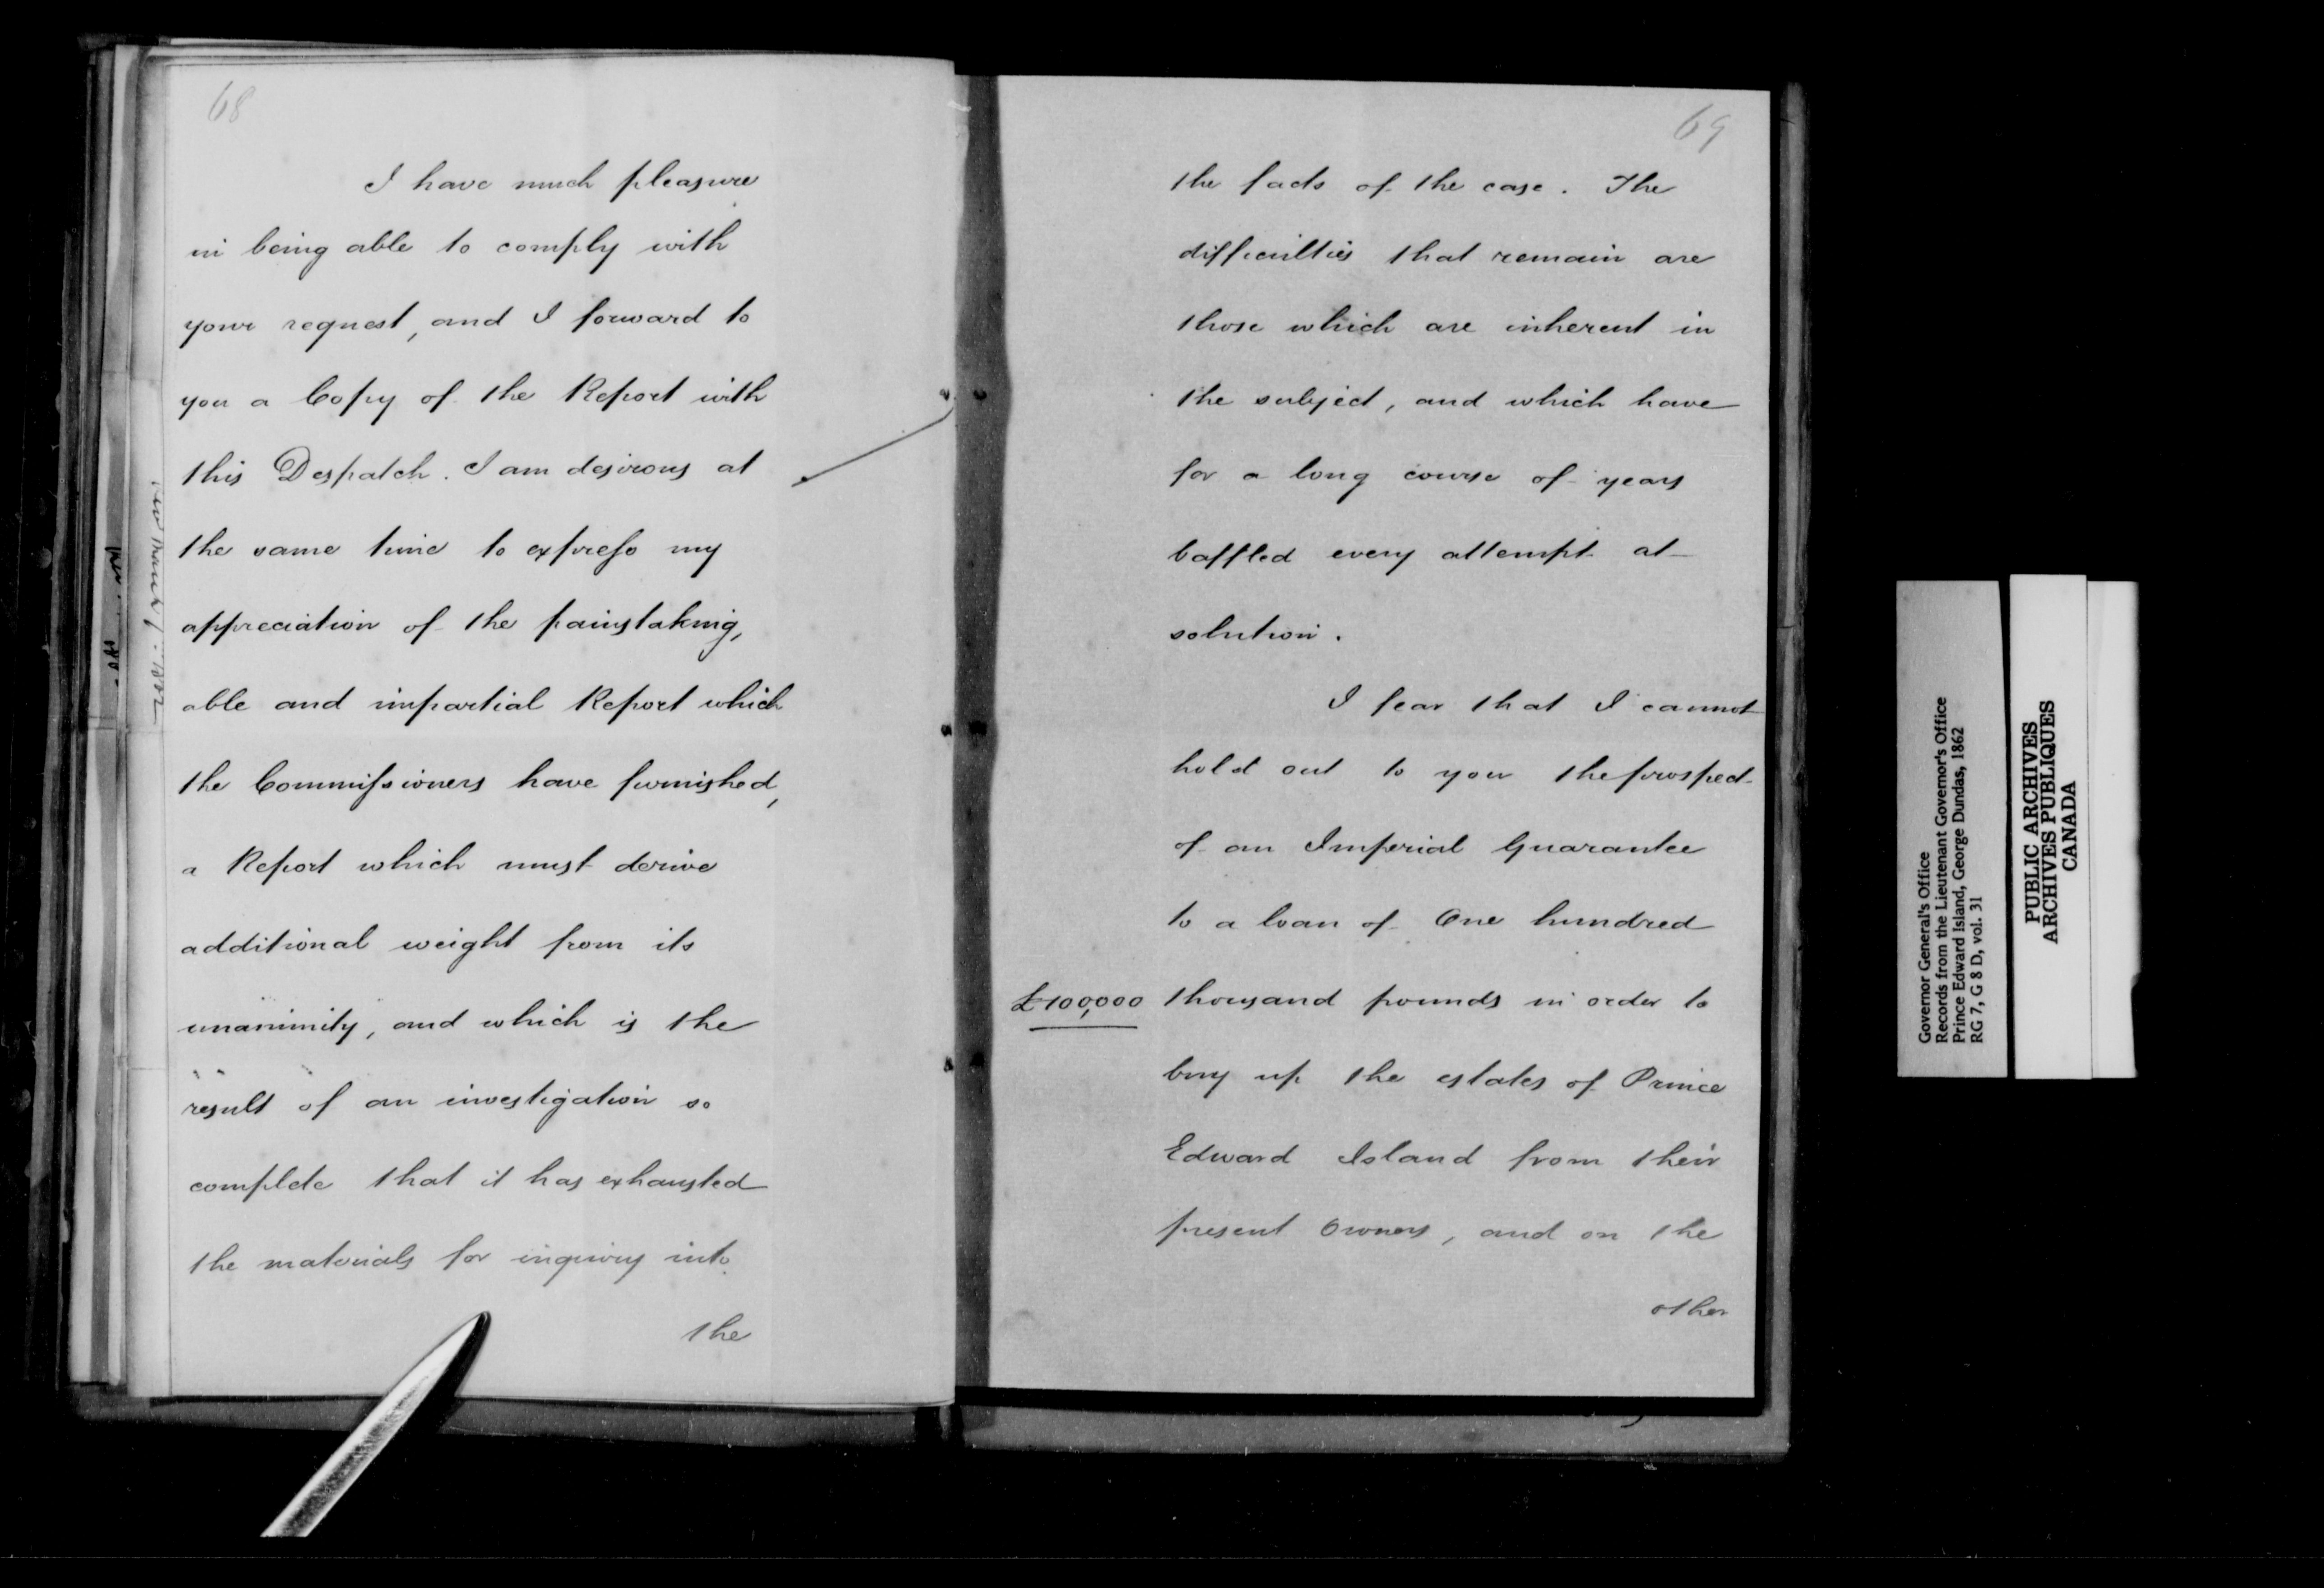 68
I have much pleasure
in being able to comply with
your request, and I forward to
you a Copy of the Report with
this Despatch. I am desirous at
the same time to express my
appreciation of the painstaking,
able and impartial Report which
the Commissioners have furnished,
a Report which must derive
additional weight from its
unanimity, and which is the
result of an investigation so
complete that it has exhausted
the materials for inquiry into
the
69
the facts of the case. The
difficulties that remain are
those which are inherent in
the subject, and which have
for a long course of years
baffled every attempt at
solution.
I fear that I cannot
hold out to you the prospect
of an Imperial Guarantee
to a loan of One hundred
£100,000 thousand pounds in order to
buy up the estates of Prince
Edward Island from their
present Owners, and on the
other
Governor General's Office
Records from the Lieutenant Governor's Office
Prince Edward Island, George Dundas, 1862
RG 7, G 8 D, vol. 31
PUBLIC ARCHIVES
ARCHIVES PUBLIQUES
CANADA